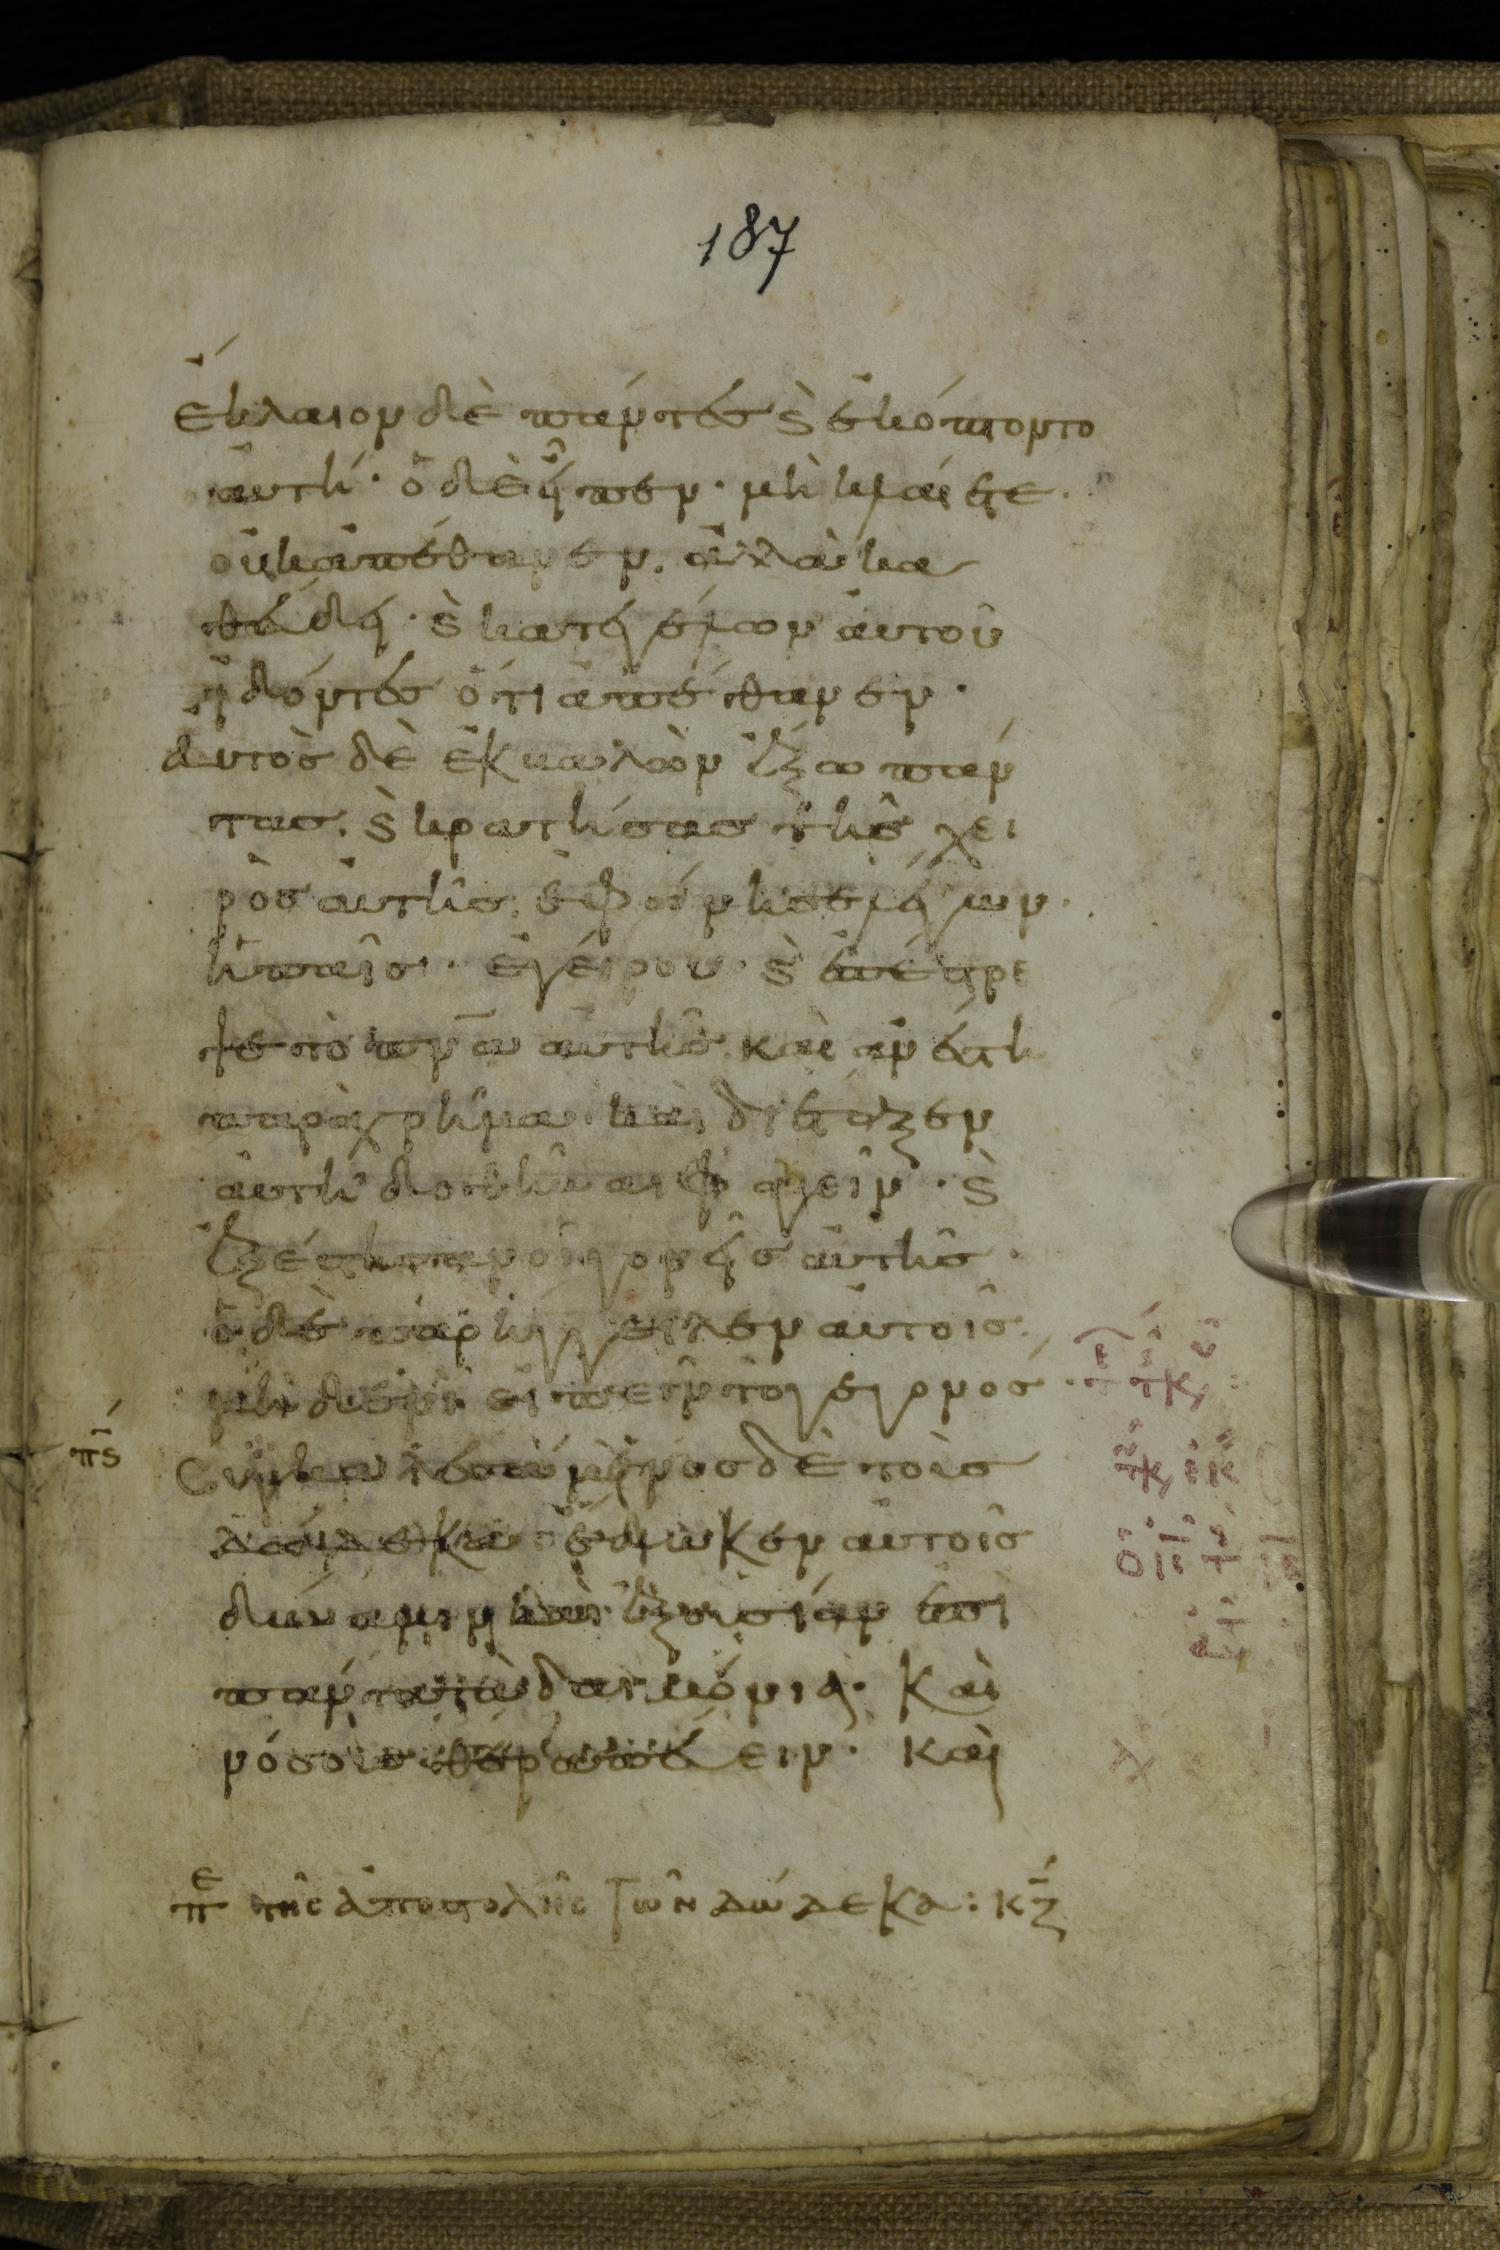 187
ἔκλαιον δὲ πάντες ϗ ἐκόπτοντο
αὐτή· ὁ δὲ εἶπεν· μὴ κλαίετε·
οὐκ ἀπέθανεν. ἀλλὰ κα
θεύδει· ϗ κατεγέλων αὐτοῦ
εἰδότες ὅτι ἀπέθανεν·
Αυτὸς δὲ ἐκβαλὼν ἔξω πάν
τας. ϗ κρατήσας τῆς χει
ρὸς αὐτῆς. ἐφώνησε λέγων·
ἡ παῖς· ἐγείρου· ϗ ἐπέστρε
ψε τὸ πνᾱ αὐτῆς. καὶ ἀνέστη
παραχρῆμα. καὶ διέταξεν
αὐτὴ δοθῆναι φαγεῖν· ϗ
ἐξέστησαν οἱ γονεῖς αὐτῆς·
ὁ δὲ παρήγγειλεν αὐτοῖς.
μηδενὶ εἰπεῖν τὸ γεγονός·
πς Συγκαλεσάμενος δὲ τοὺς
δώδεκα ἔδωκεν αὐτοῖς
δύναμιν καὶ ἐξουσίαν ἐπὶ
πάντα τὰ δαιμόνια· Καὶ
νόσους θεραπεύειν· καὶ
πε τῆς ἀποστολῆς τῶν δώδεκα: κζ